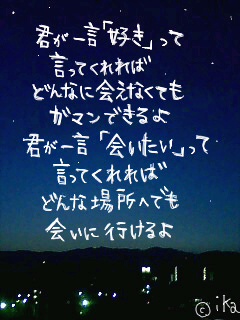 君が一言「好き」って
言ってくれれば
どんなに会えなくても
ガマンできるよ
君が一言「会いたい」って
言ってくれれば
どんな場所へでも
会いに行けるよ
©ika